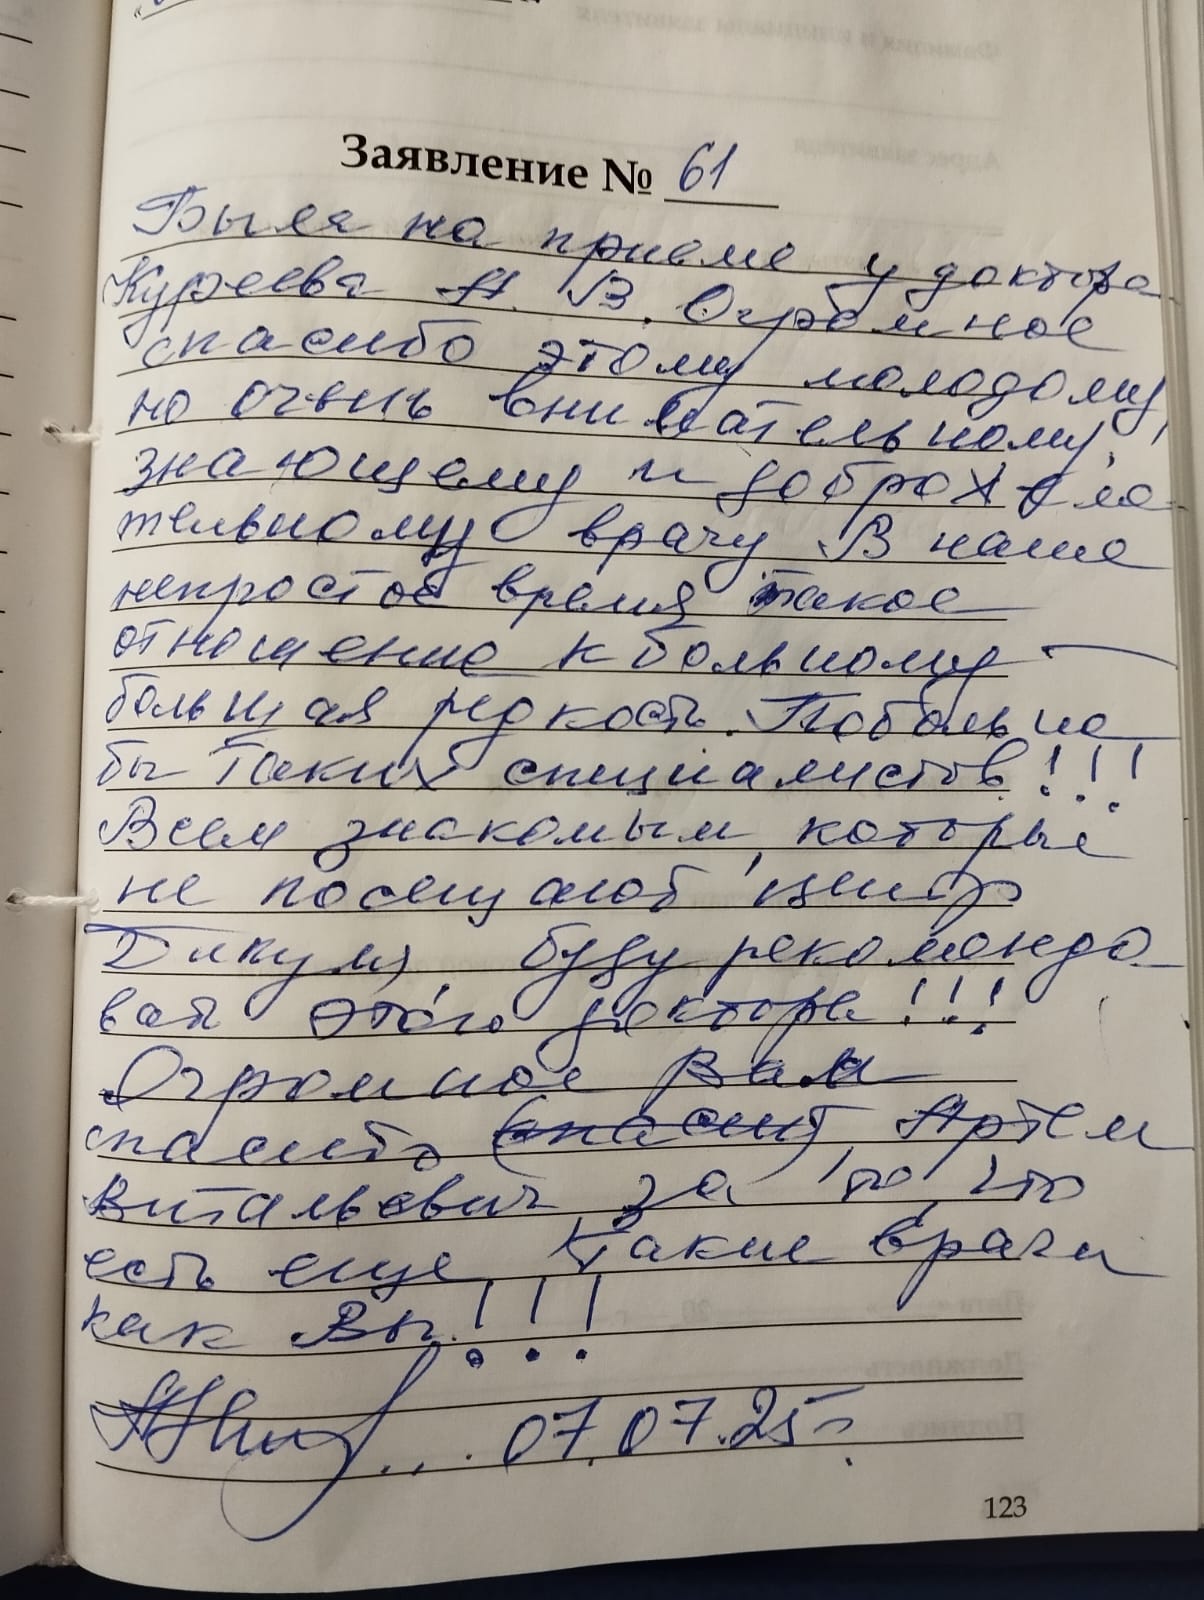 Заявление № 61
Была на приеме у доктора
Куреева А. В. Огромное
спасибо этому молодому,
но очень внимательному,
знающему и доброжела-
тельному врачу. В наше
непростое время такое
отношение к больному —
большая редкость. Побольше
бы таких специалистов!!!
Всем знакомым, которые
не посещают центр
Дикуля, буду рекоменд-
вать этого доктора!!!
Огромное Вам
спасибо Артем
Витальевич за то, что
есть еще такие врачи
как Вы!!!
07.07.25г.
123